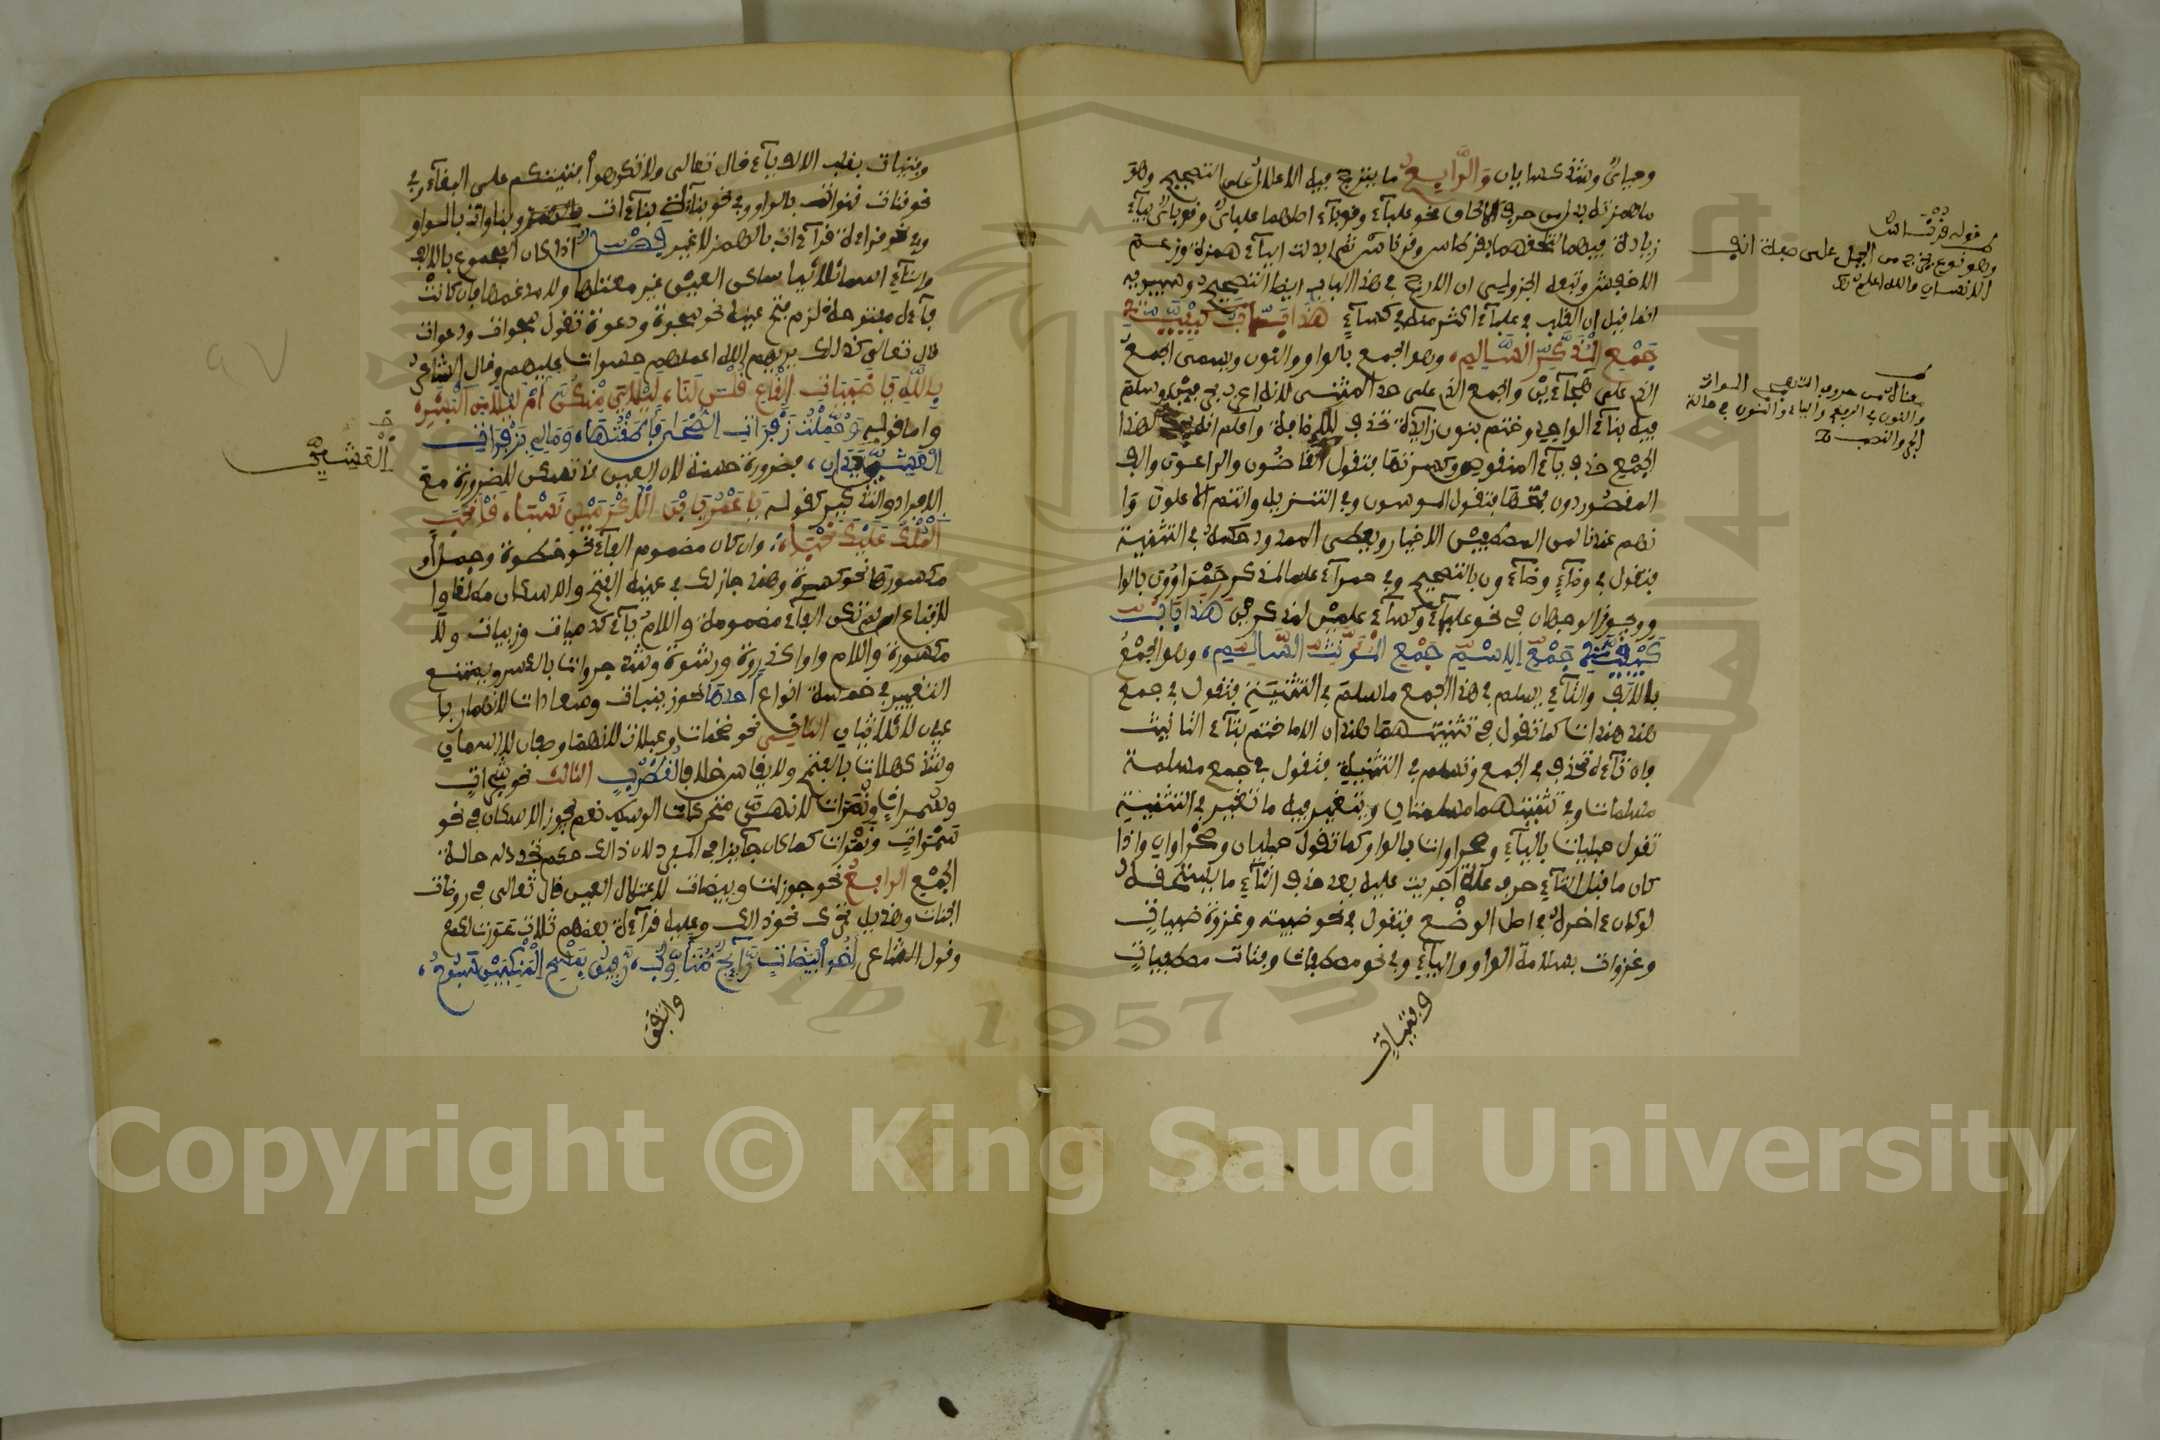 وحيائي وشذ كسايان والرابع ما يترجح فيه الاعلال على التصحيح وهو
ما همزته بدل من حرف الالحاق نحو علبآء وقوبآء اصلهما علباي وقوباي بيآء
زيادة فيهما لتلحقهما بقرطاس وقرناس ثم ابدلت اليآء همزة وزعم
الاخفش وتبعه الجزولي ان الارجح في هذا الباب ايضا التصحيح وسيبويه
انما قيل ان القلب في علبآء اكثر منه في كسآء هذا باب كيفية
جمع المذكر السالم وهو الجمع بالواو والنون ويسمى الجمع
الذي على هجآءين والجمع الذي على حد المثنى لانه اعرب بحرفين وسلم
فيه بنآء الواحد وختم بنون زآيدة تحذف للاضافة واعلم انه يحذف لهذا
الجمع حذف يآء المنقوص وكسرتها فتقول القاضون والراعون والف
المقصور دون فتحتها فتقول الموسون وفي التنزيل وانتم الاعلون وا
نهم عندنا لمن المصطفين الاخيار ويعطى الممدود حكمه في التثنية
فتقول في وضآء وضآءون بالتصحيح وفي حمرآء علما لمذكر حمراوون بالوا
و ويجوز الوجهان في نحو علبآء وكسآء علمين لمذكرين هذا باب
كيفية جمع الاسم جمع المؤنث السالم وهو الجمع
بالالف والتآء يسلم في هذا الجمع ما سلم في التثنية فتقول في جمع
هند هندات كما تقول في تثنيتهما هندان الا ما ختم بتآء التانيث
فان تآءه تحذف في الجمع وتسلم في التثنية فتقول في جمع مسلمة
مسلمات وفي تثنيتهما مسلمتان ويتغير فيه ما تغير في التثنية
تقول حبليات باليآء وصحراوات بالواو كما تقول حبليان وصحراوان واذا
كان ما قبل التآء حرف علة اجريت عليه بعد حذف التآء ما يستحقه
لو كان ءاخرا في اصل الوضع فتقول في نحو ضبية وغزوة ضبيات
وغزوات بسلامة الواو واليآء وفي نحو مصطفاة وفتاة مصطفيات
وفتيات
قوله قرناس
وهو نوع يخرج من الجبل على صفة انف
الانسان والله اعلم
معناه من حروف التهجي الواو
والنون في الرفع والياء والنون في حالة
الجر والنصب
وفتيات بقلب الالف يآء قال تعالى ولا تكرهوا فتيتكم على البغآء وفي
نحو قناة قنوات بالواو وفي نحو بنآءة بنآءات وبناوات بالواو
وفي نحو قراءة قرآءات بالهمز لا غير فصل اذا كان المجموع بالالف
والتآء اسما ثلاثيا ساكن العين غير معتلها ولا مدغمها فان كانت
فآءه مفتوحة لزم فتح عينه نحو سجدة ودعوة تقول سجدات ودعوات
قال تعالى كذلك يريهم الله اعملهم حسرات عليهم وقال الشاعر
بالله يا ظبيات القاع قلن لنا ليلاي منكن ام ليلى من البشر
واما قوله وحملت زفرات الضحى فاطقتها وما لي بزفرات
العشي يدان فضرورة حسنة لان العين قد تسكن للضرورة مع
الافراد والتذكير كقوله يا عمرو يا بن الاكرمين نسبا قد نحب
المجد عليك نحبا وان كان مضموم الفآء نحو خطوة وجمل او
مكسورها نحو كسرة وهند جاز لك في عينه الفتح والاسكان مطلقا وا
لاتباع ان لم تكن الفآء مضمومة واللام يآء كدميات وزبيات ولا
مكسورة واللام واوا كذروة ورشوة وشذ جروات بالكسر ويمتنع
التغيير في خمسة انواع احدها نحو زينبات وسعادات لانهما ربا
عيان لا ثلاثيان الثاني نحو ضخمات وعبلات لانهما وصفان لا اسمان
وشذ كهلات بالفتح ولا يقاس خلافا لقطرب الثالث نحو شجرات
وسمرات ونمرات لانهن متحركات الوسط نعم يجوز الاسكان في نحو
سمرات ونمرات كما كان جآئزا في المفرد لان ذلك حكم تجدد حالة
الجمع الرابع نحو جوزات وبيضات لاعتلال العين قال تعالى في روضات
الجنات وهذيل تحرك نحو ذلك وعليه قرآءة بعضهم ثلاث عورات لكم
وقول الشاعر اخو بيضات رآئح متأوب رفيق بمسح المنكبين سبوح
واتفق
العشي
٩٧